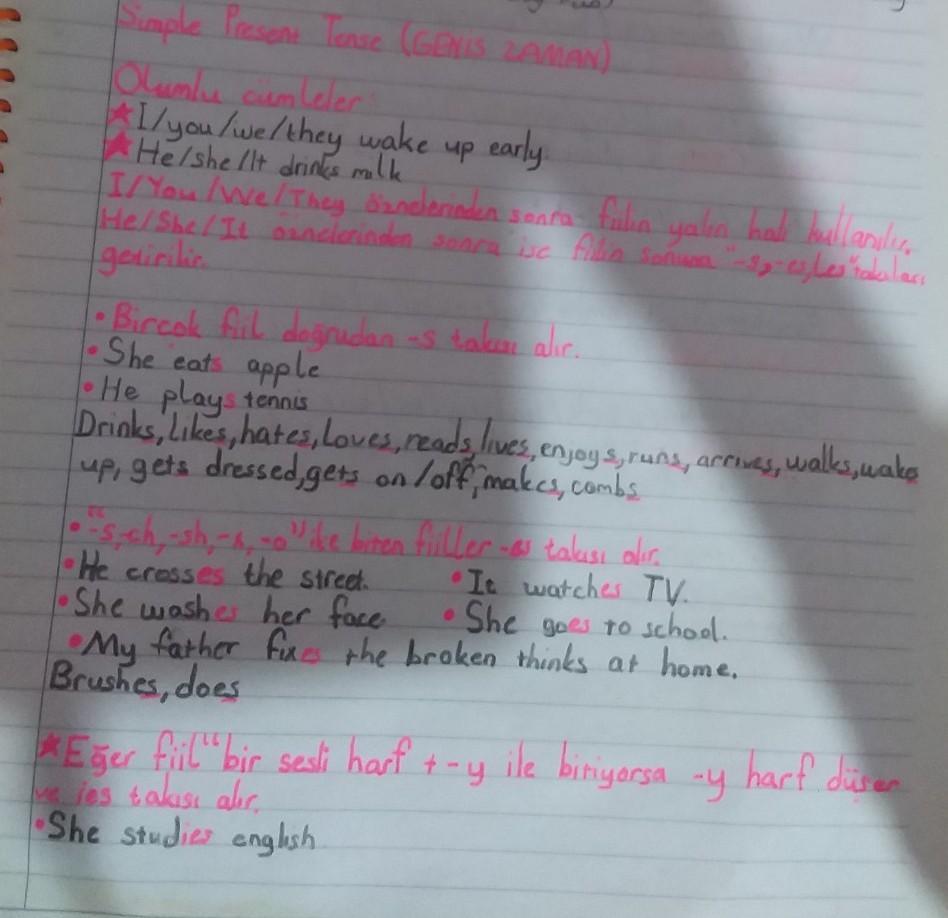 Simple Present Tense (GENİS ZAMAN)
Olumlu cümleler
I/you/we/they wake up early
He/she/It drinks milk
I/You/We/They öznelerinden sonra fiilin yalın hali kullanılır.
He/She/It öznelerinden sonra ise fiilin sonuna "-s,-es,ies" takıları
getirilir.
• Bircok fiil doğrudan -s takısı alır.
• She eats apple
• He plays tennis
Drinks, likes, hates, loves, reads, lives, enjoys, runs, arrives, walks, wakes
up, gets dressed, gets on/off, makes, combs
• "-s,-ch,-sh,-x,-o" ile biten fiiller -es takısı alır.
• He crosses the street. • It watches TV.
• She washes her face • She goes to school.
• My father fixes the broken thinks at home.
Brushes, does
★Eğer fiil "bir sesli harf + -y ile bitiyorsa -y harf düşer
ve ies takısı alır.
• She studies english